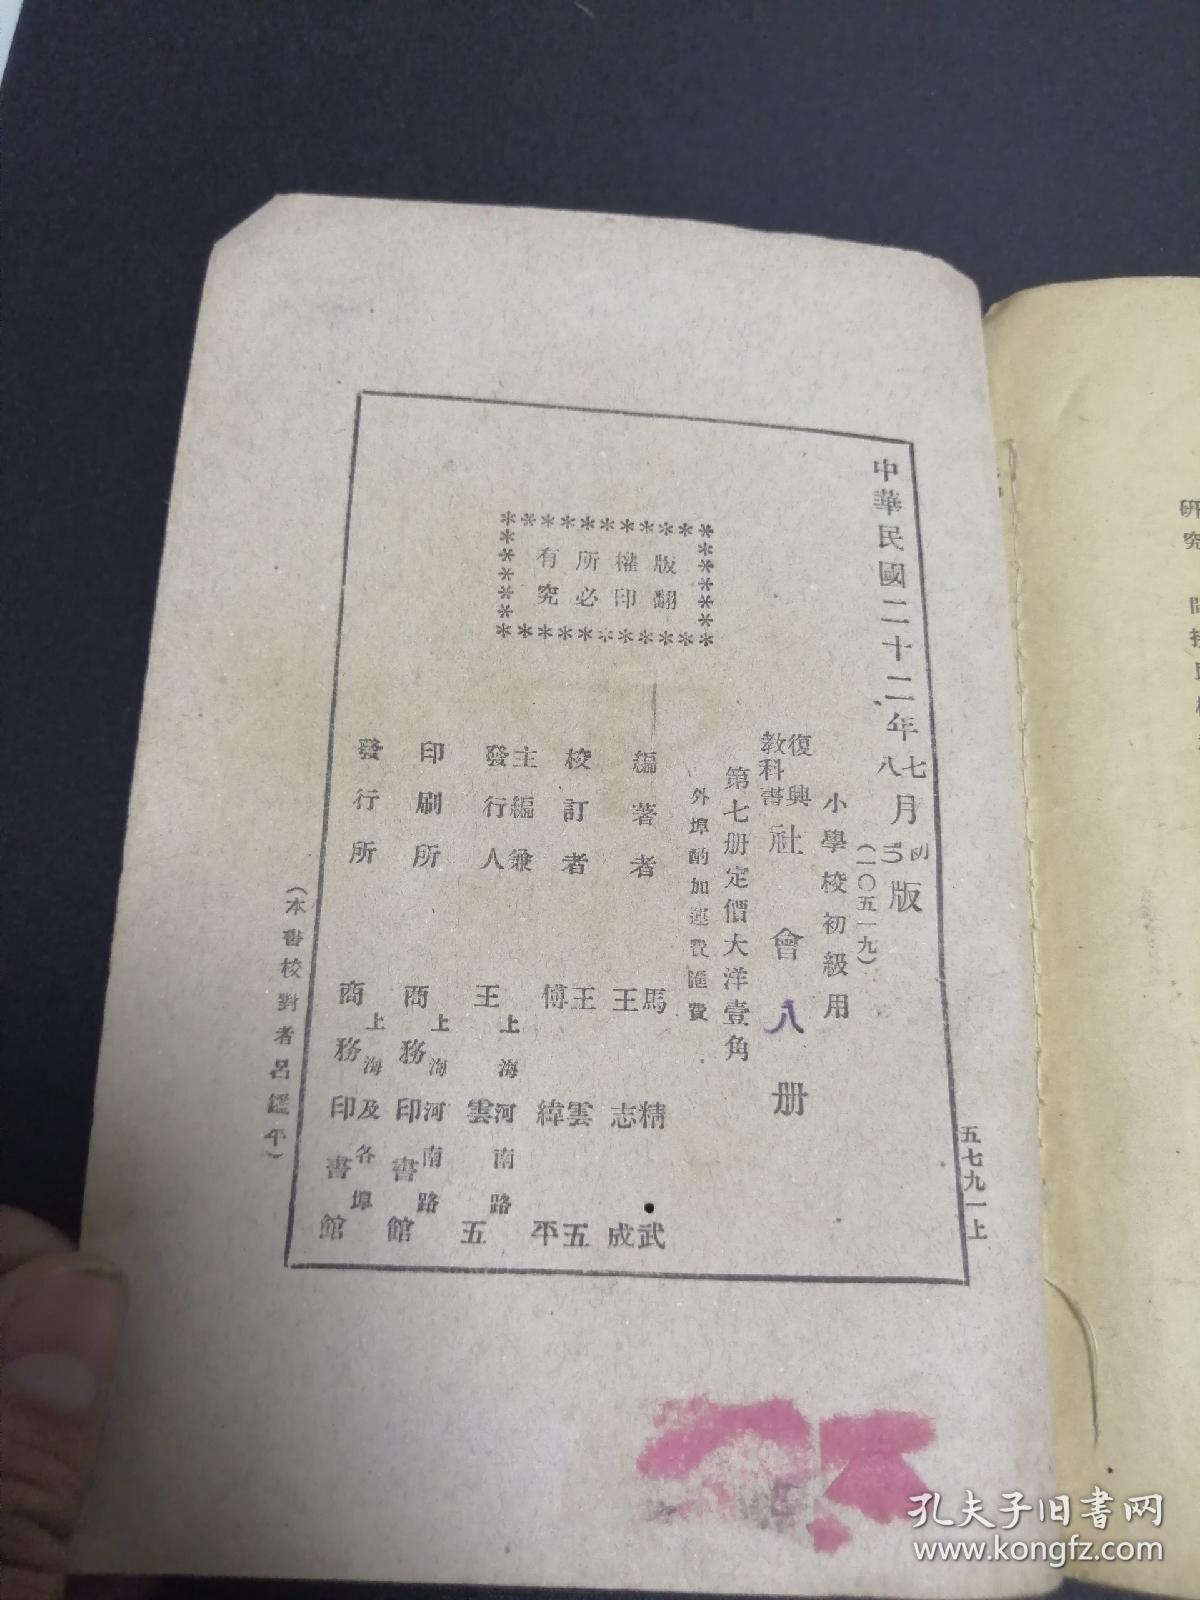 五七九一上
中華民國二十二年七月初版
八
(一〇五一九)
小學校初級用
復興
教科書
社會八册
第七册定價大洋壹角
外埠酌加運費匯費
版權所有
翻印必究
編著者
馬精武
王志成
校訂者
王雲五
傅緯平
主編兼
發行人
上海河南路
王雲五
印刷所
上海河南路
商務印書館
發行所
上海及各埠
商務印書館
(本書校對者呂鑑平)
研究
孔夫子旧书网
www.kongfz.com